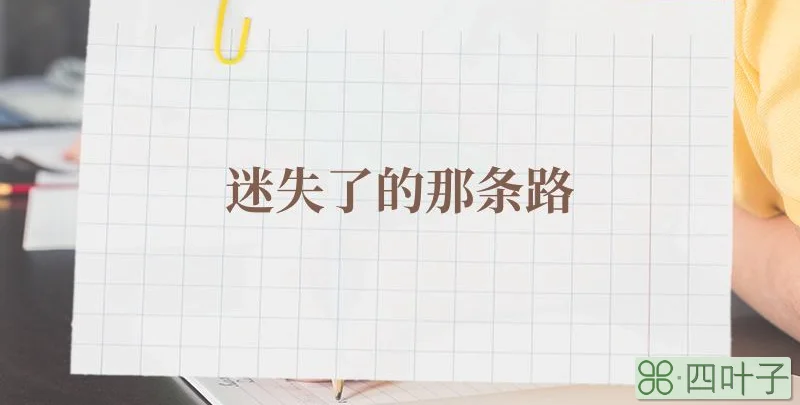 迷失了的那条路
四叶子